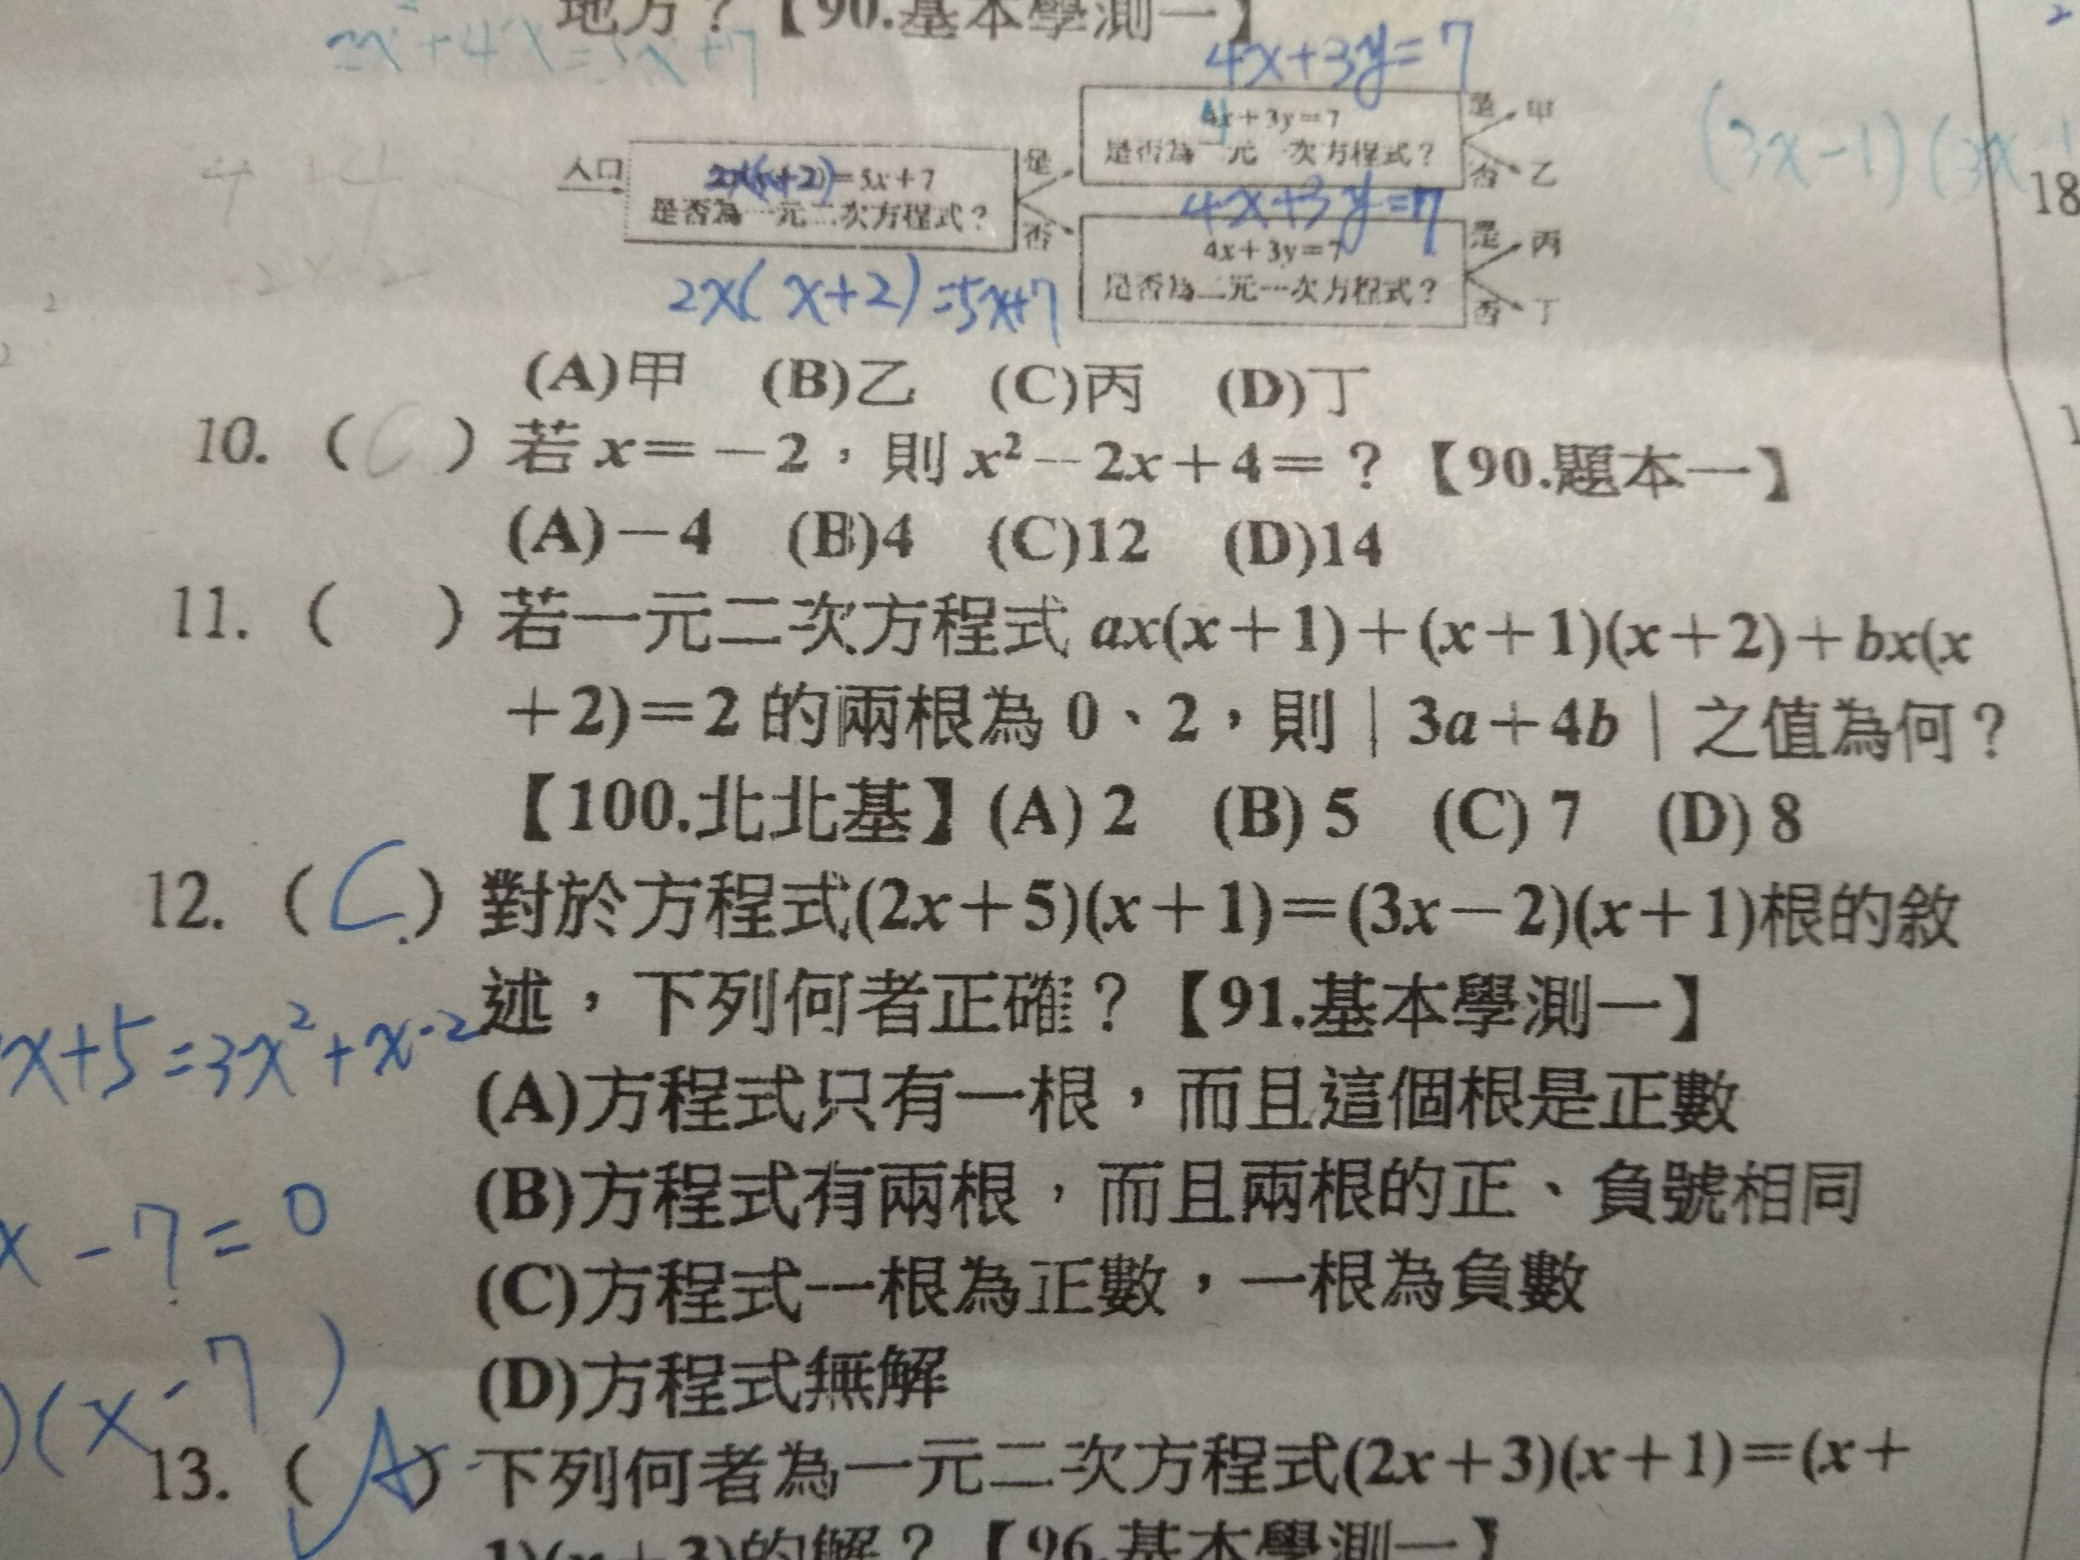 地方？【90.基本學測一】
2x²+4x=5x+7
4x+3y=7
4x+3y=7
是否為二元一次方程式？
是 甲
否 乙
入口
2x(x+2)=5x+7
是否為一元二次方程式？
是
否
4x+3y=7
4x+3y=7
是否為二元一次方程式？
是 丙
否 丁
2x(x+2)=5x+7
(3x-1)(3x
18
(A)甲 (B)乙 (C)丙 (D)丁
10. （C）若x=-2，則x²-2x+4=？【90.題本一】
(A)-4 (B)4 (C)12 (D)14
11. （ ）若一元二次方程式ax(x+1)+(x+1)(x+2)+bx(x
+2)=2的兩根為0、2，則｜3a+4b｜之值為何？
【100.北北基】(A) 2 (B) 5 (C) 7 (D) 8
12. （C）對於方程式(2x+5)(x+1)=(3x-2)(x+1)根的敘
述，下列何者正確？【91.基本學測一】
x+5=3x²+x-2
(A)方程式只有一根，而且這個根是正數
(B)方程式有兩根，而且兩根的正、負號相同
x-7=0
(C)方程式一根為正數，一根為負數
(D)方程式無解
)(x-7)
13. （A）下列何者為一元二次方程式(2x+3)(x+1)=(x+
1)(x+3)的解？【96.基本學測一】